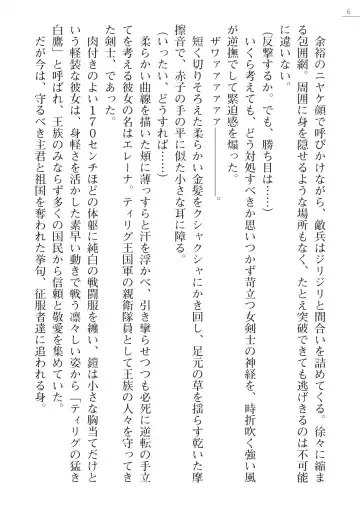 6
余裕のニヤケ顔で呼びかけながら、敵兵はジリジリと間合いを詰めてくる。徐々に縮ま
る包囲網。周囲に身を隠せるような場所もなく、たとえ突破できても逃げきるのは不可能
に違いない。
(反撃するか。でも、勝ち目は……)
いくら考えても、どう対処すべきか思いつかず苛立つ女剣士の神経を、時折吹く強い風
が逆撫でして緊迫感を煽った。
ザワァァァァァ
短く切りそろえた柔らかい金髪をクシャクシャにかき回し、足元の草を揺らす乾いた摩
擦音で、赤子の手の平に似た小さな耳に障る。
(いったい、どうすれば……)
柔らかい曲線を描いた頬に薄っすらと汗を浮かべ、引き攣らせつつも必死に逆転の手立
てを考える彼女の名はエレーナ。ティリグ王国軍の親衛隊員として王族の人々を守ってき
た剣士、であった。
肉付きのよい170センチほどの体躯に純白の戦闘服を纏い、鎧は小さな胸当てだけと
いう軽装な彼女は、身軽さを活かした素早い動きで戦う凛々しい姿から「ティリグの猛き
白鷹」と呼ばれ、王族のみならず多くの国民から信頼と敬愛を集めていた。
だが今は、守るべき主君と祖国を奪われた挙句、征服者達に追われる身。